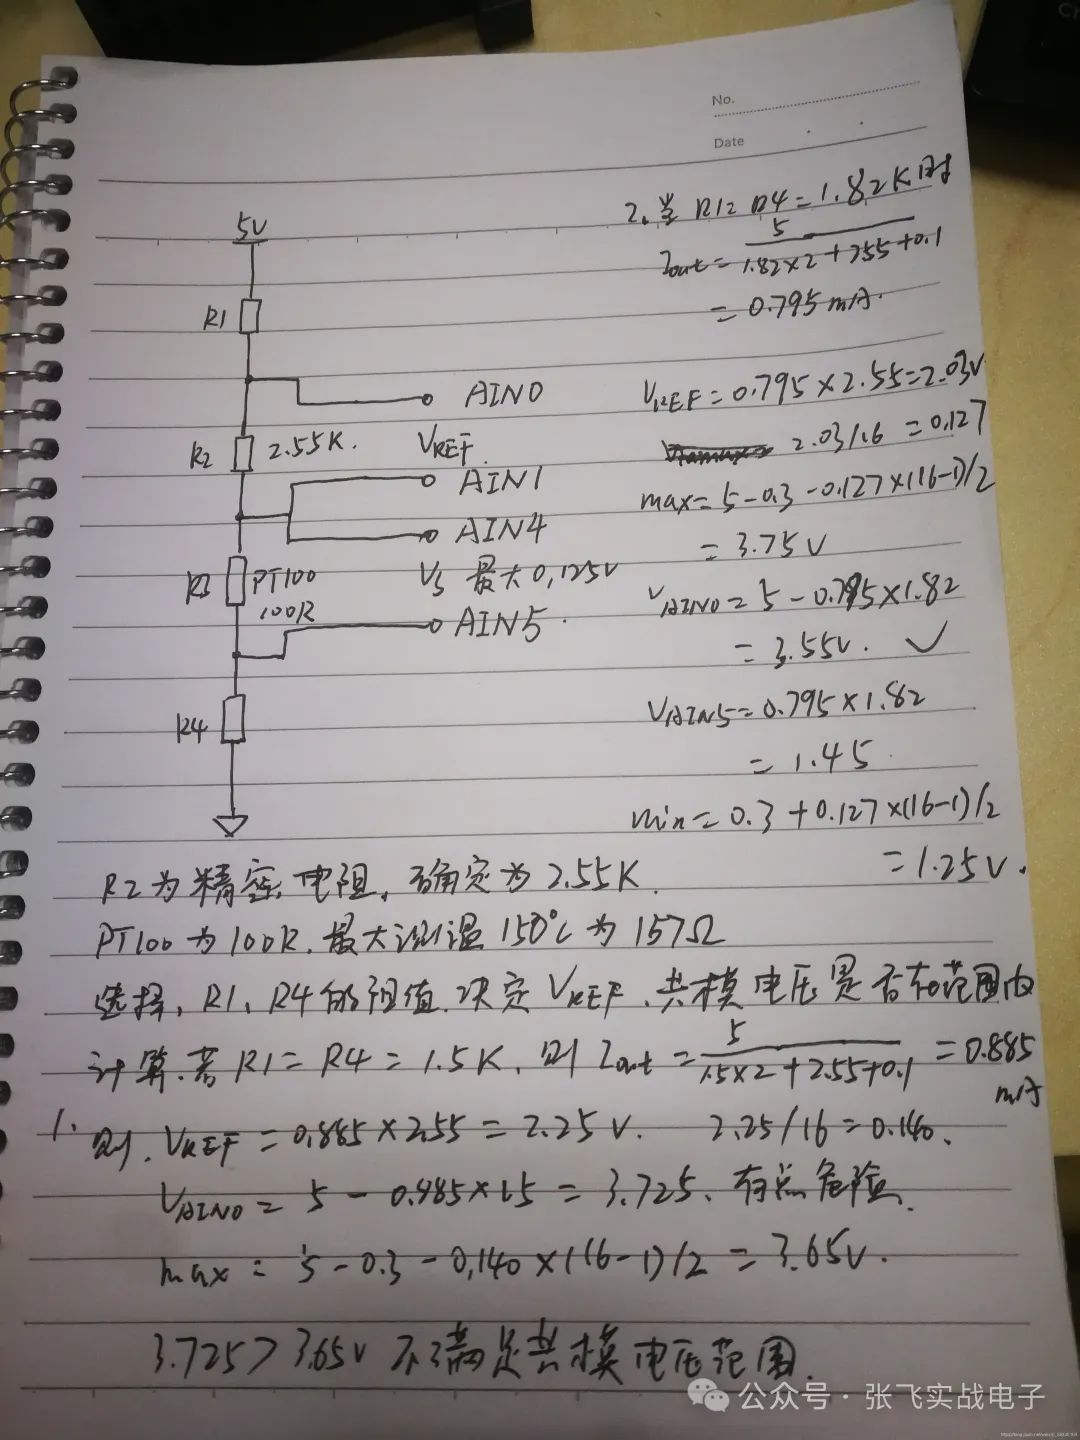 No.
Date
5V
R1
AIN0
R2 2.55K. VREF
AIN1
AIN4
R3 PT100 Vs 最大0,125V
100R
AIN5.
R4
2. 当R1=R4=1.82K时
Iout= 5
1.82×2+255+0.1
=0.795mA.
VREF=0.795×2.55=2.03V
2.03/16=0.127
max=5-0.3-0.127×(16-1)/2
=3.75V
VAIN0=5-0.795×1.82
=3.55V. ✓
VAIN5=0.795×1.82
=1.45
min=0.3+0.127×(16-1)/2
=1.25V.
R2为精密电阻,确定为2.55K.
PT100为100R.最大测温150℃为157Ω
选择,R1、R4的阻值.决定VREF、共模电压是否在范围内
计算.若R1=R4=1.5K,则Iout= 5 =0.885
1.5×2+2.55+0.1 mA
1. 则.VREF=0.885×2.55=2.25V. 2.25/16=0.140.
VAIN0=5-0.885×1.5=3.725、有点危险.
max=5-0.3-0.140×(16-1)/2=3.65V.
3.725>3.65V 不满足共模电压范围.
公众号·张飞实战电子